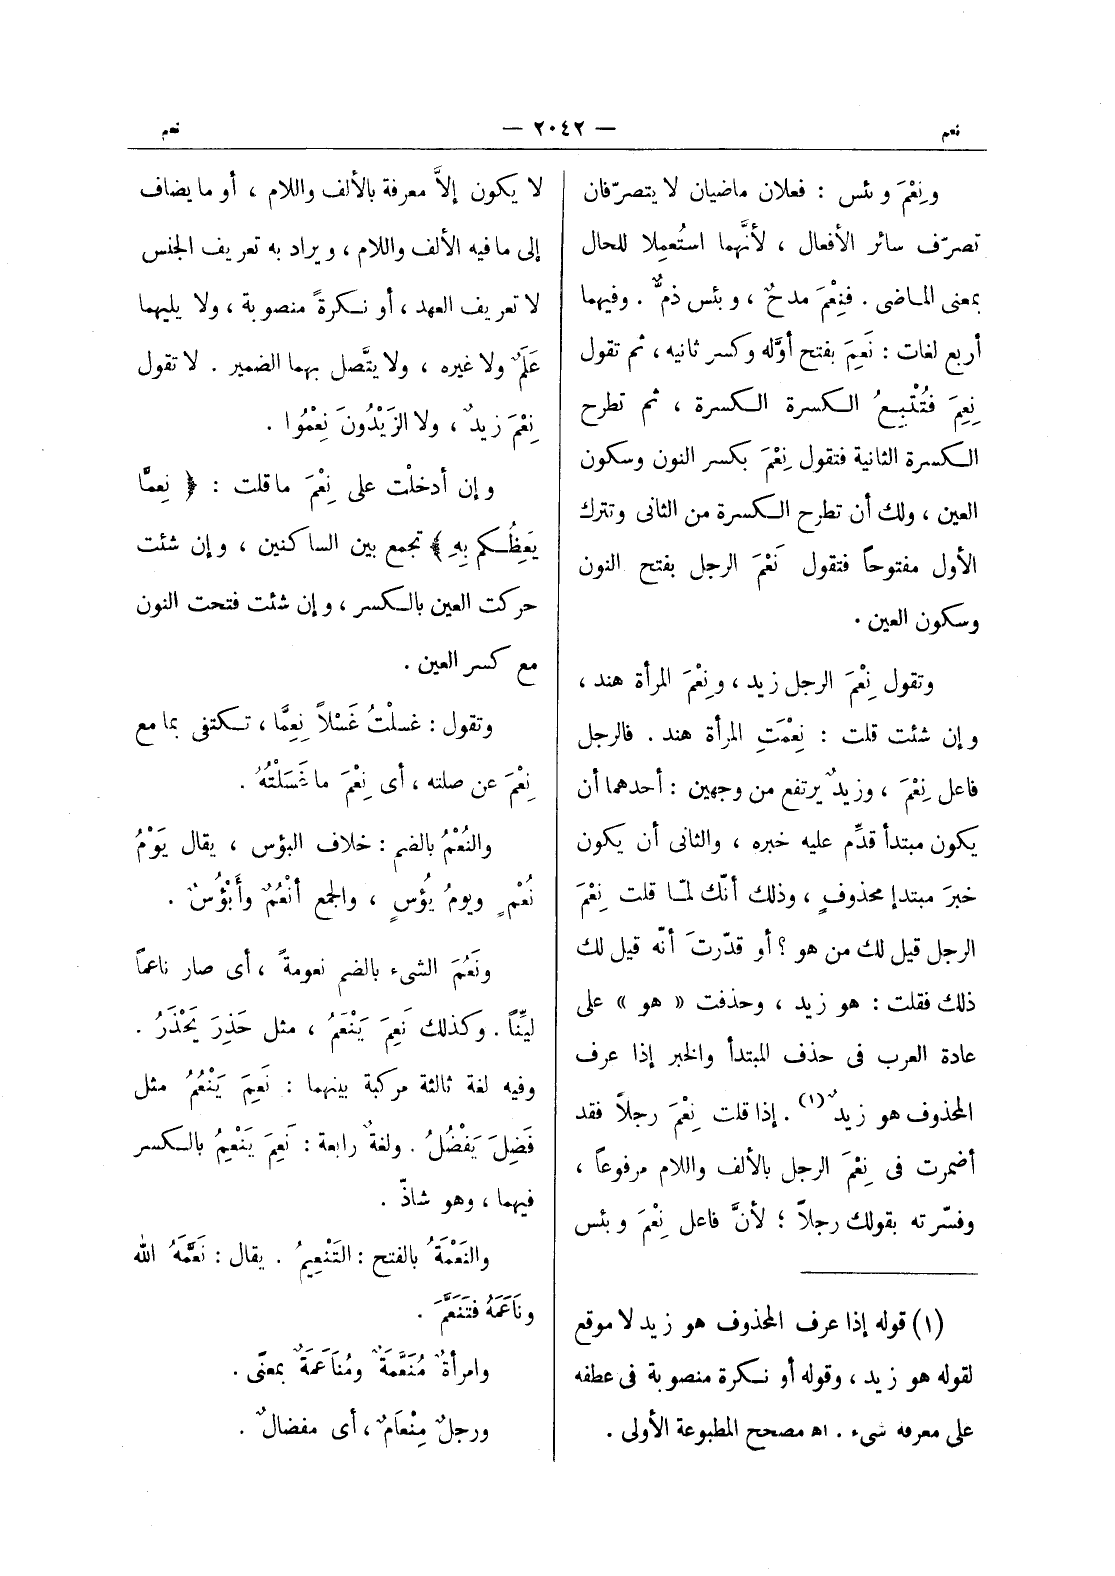 نعم — ٢٠٤٢ — نعم
ونِعْمَ وبئس : فعلان ماضيان لا يتصرّفان
تصرّف سائر الأفعال ، لأنَّهما استُعملا للحال
بمعنى الماضى . فنِعْمَ مدحٌ ، وبئس ذمٌّ . وفيهما
أربع لغات : نَعِمَ بفتح أوَّله وكسر ثانيه ، ثم تقول
نِعِمَ فتُتْبِعُ الكسرة الكسرة ، ثم تطرح
الكسرة الثانية فتقول نِعْمَ بكسر النون وسكون
العين ، ولك أن تطرح الكسرة من الثانى وتترك
الأول مفتوحاً فتقول نَعْمَ الرجل بفتح النون
وسكون العين .
وتقول نِعْمَ الرجل زيد ، ونِعْمَ المرأة هند ،
وإن شئت قلت : نِعْمَتِ المرأة هند . فالرجل
فاعل نِعْمَ ، وزيدٌ يرتفع من وجهين : أحدهما أن
يكون مبتدأ قدِّم عليه خبره ، والثانى أن يكون
خبرَ مبتدإ محذوفٍ ، وذلك أنّك لمّا قلت نِعْمَ
الرجل قيل لك من هو ؟ أو قدّرتَ أنّه قيل لك
ذلك فقلت : هو زيد ، وحذفت « هو » على
عادة العرب فى حذف المبتدأ والخبر إذا عرف
المحذوف هو زيدٌ (١) . إذا قلت نِعْمَ رجلاً فقد
أضمرت فى نِعْمَ الرجل بالألف واللام مرفوعاً ،
وفسّرته بقولك رجلاً ؛ لأنَّ فاعل نِعْمَ وبئس
(١) قوله إذا عرف المحذوف هو زيد لا موقع
لقوله هو زيد ، وقوله أو نكرة منصوبة فى عطفه
على معرفه شىء . اه مصحح المطبوعة الأولى .
لا يكون إلاَّ معرفة بالألف واللام ، أو ما يضاف
إلى ما فيه الألف واللام ، ويراد به تعريف الجنس
لا تعريف العهد ، أو نكرةً منصوبة ، ولا يليهما
عَلَمٌ ولا غيره ، ولا يتَّصل بهما الضمير . لا تقول
نِعْمَ زيدٌ ، ولا الزَيْدُونَ نِعْمُوا .
وإن أدخلْت على نِعْمَ ما قلت : ﴿ نِعمَّا
يَعِظُكم بِهِ ﴾ تجمع بين الساكنين ، وإن شئت
حركت العين بالكسر ، وإن شئت فتحت النون
مع كسر العين .
وتقول : غسلْتُ غَسْلاً نِعِمَّا ، تكتفى بما مع
نِعْمَ عن صلته ، أى نِعْمَ ما غَسَلْتُهُ .
والنُعْمُ بالضم : خلاف البؤس ، يقال يَوْمُ
نُعْمٍ ويومُ بُؤسٍ ، والجمع أنْعُمٌ وأَبْؤُسٌ .
ونَعُمَ الشىء بالضم نعومةً ، أى صار ناعماً
ليِّناً . وكذلك نَعِمَ يَنْعَمُ ، مثل حَذِرَ يَحْذَرُ .
وفيه لغة ثالثة مركبة بينهما : نَعِمَ يَنْعُمُ مثل
فَضِلَ يَفْضُلُ . ولغةٌ رابعة : نَعِمَ يَنْعِمُ بالكسر
فيهما ، وهو شاذّ .
والنَعْمَةُ بالفتح : التَنْعِيمُ . يقال : نَعَّمَهُ الله
ونَاعَمَهُ فتَنَعَّمَ .
وامرأةٌ مُنَعَّمَةٌ ومُنَاعَمَةٌ بمعنًى .
ورجلٌ مِنْعَامٌ ، أى مفضالٌ .